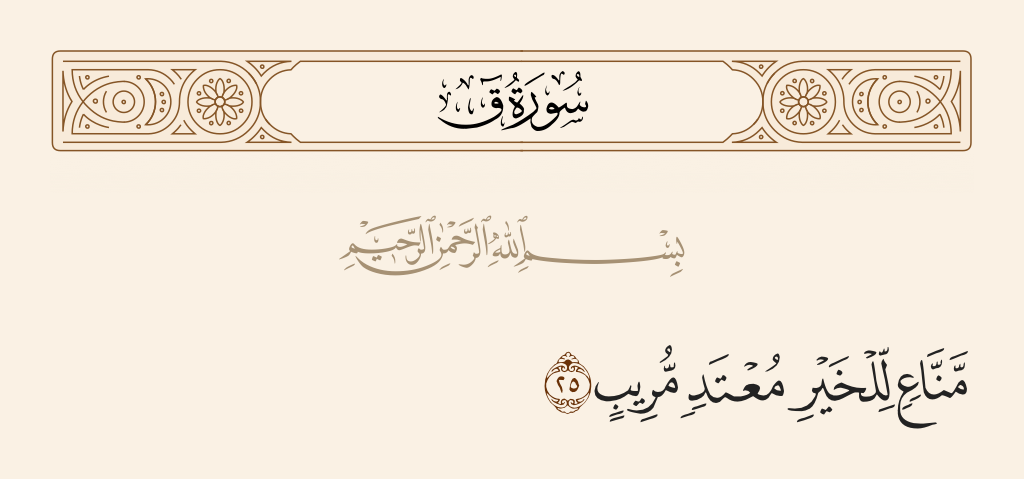 سُورَةُ قٓ
بِسْمِ ٱللَّهِ ٱلرَّحْمَٰنِ ٱلرَّحِيمِ
مَّنَّاعٍ لِّلْخَيْرِ مُعْتَدٍ مُّرِيبٍ ٢٥